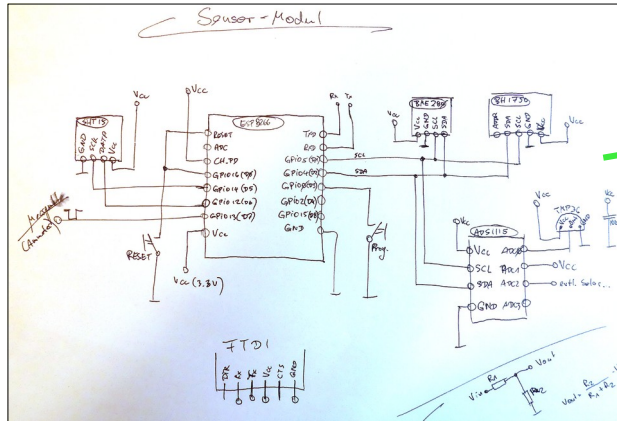 Sensor-Modul
SHT15
GND
SCK
DATA
Vcc
Vcc
Vcc
ESP8266
RESET
ADC
CH_PD
GPIO16(D0)
GPIO14(D5)
GPIO12(D6)
GPIO13(D7)
Vcc
TXD
RXD
GPIO5(D1)
GPIO4(D2)
GPIO2(D4)
GPIO15(D8)
GND
Rx
Tx
SCL
SDA
RESET
Vcc (3.3V)
Prog.
Vcc
Vcc
GND
SCL
SDA
BH1750
ADDR
SDA
SCL
GND
Vcc
Vcc
ADS1115
Vcc
SCL
SDA
GND
AD0
ADC1
ADC2
ADC3
Vcc
Vcc
Vcc
TMP36
Vcc
GND
evtl. Solar..
FTDI
DTR
Rx
Tx
Vcc
CTS
GND
Vin
R1
R2
Vout
Vout = R2
R1+R2